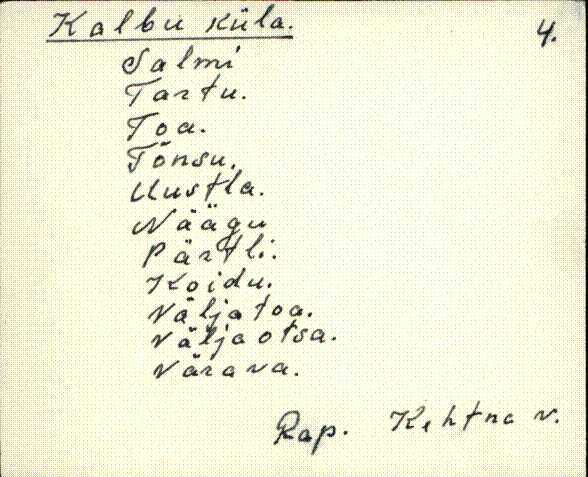 Kalbu küla.
4.
Salmi
Tartu.
Toa.
Tõnsu.
Uustla.
Näägu
Pärtli.
Koidu.
Väljatoa.
Väljaotsa.
Värava.
Rap. Kehtna v.